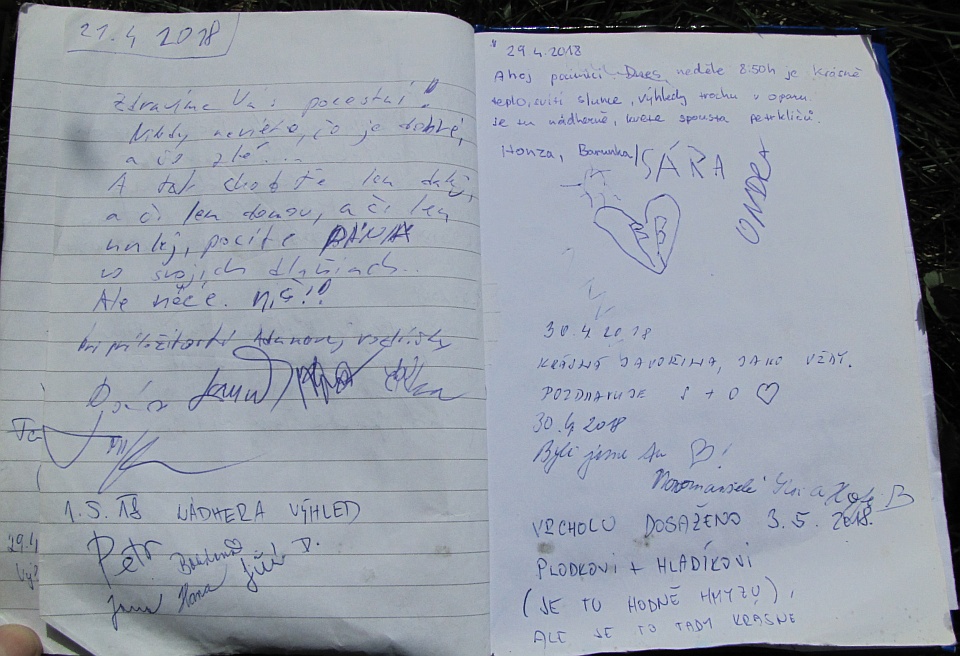 21.4 2018
Zdravíme Vás pocestní!
Nikdy nevieto, čo je dobré,
a čo zlé...
A tak choďte len ďalej,
a či len domov, a či len
pocíte PÁNA
vo svojich dlaniach..
Ale něčé. nič!!
Pri príležitosti
1.5.18 NÁDHERA VÝHLED
Petr Bohdana Jiří D.
Jana Hana
29.4
29.4.2018
Ahoj poutníci. Dnes neděle 8:50h je krásně
teplo, svítí slunce, výhledy trochu v oparu
je tu nádherně, kvete spousta petrklíčů.
Honza, Barunka/SÁRA
ONDRA
B B
30.4 2018
KRÁSNÁ JAVOŘINA, JAKO VŽDY.
POZDRAVUJE S + O
30.4 2018
Byli jsme tu
Novomanželé
VRCHOLU DOSAŽENO 3.5. 2018.
PLODKOVI + HLADÍKOVI
(JE TU HODNĚ HMYZU),
ALE JE TO TADY KRÁSNE